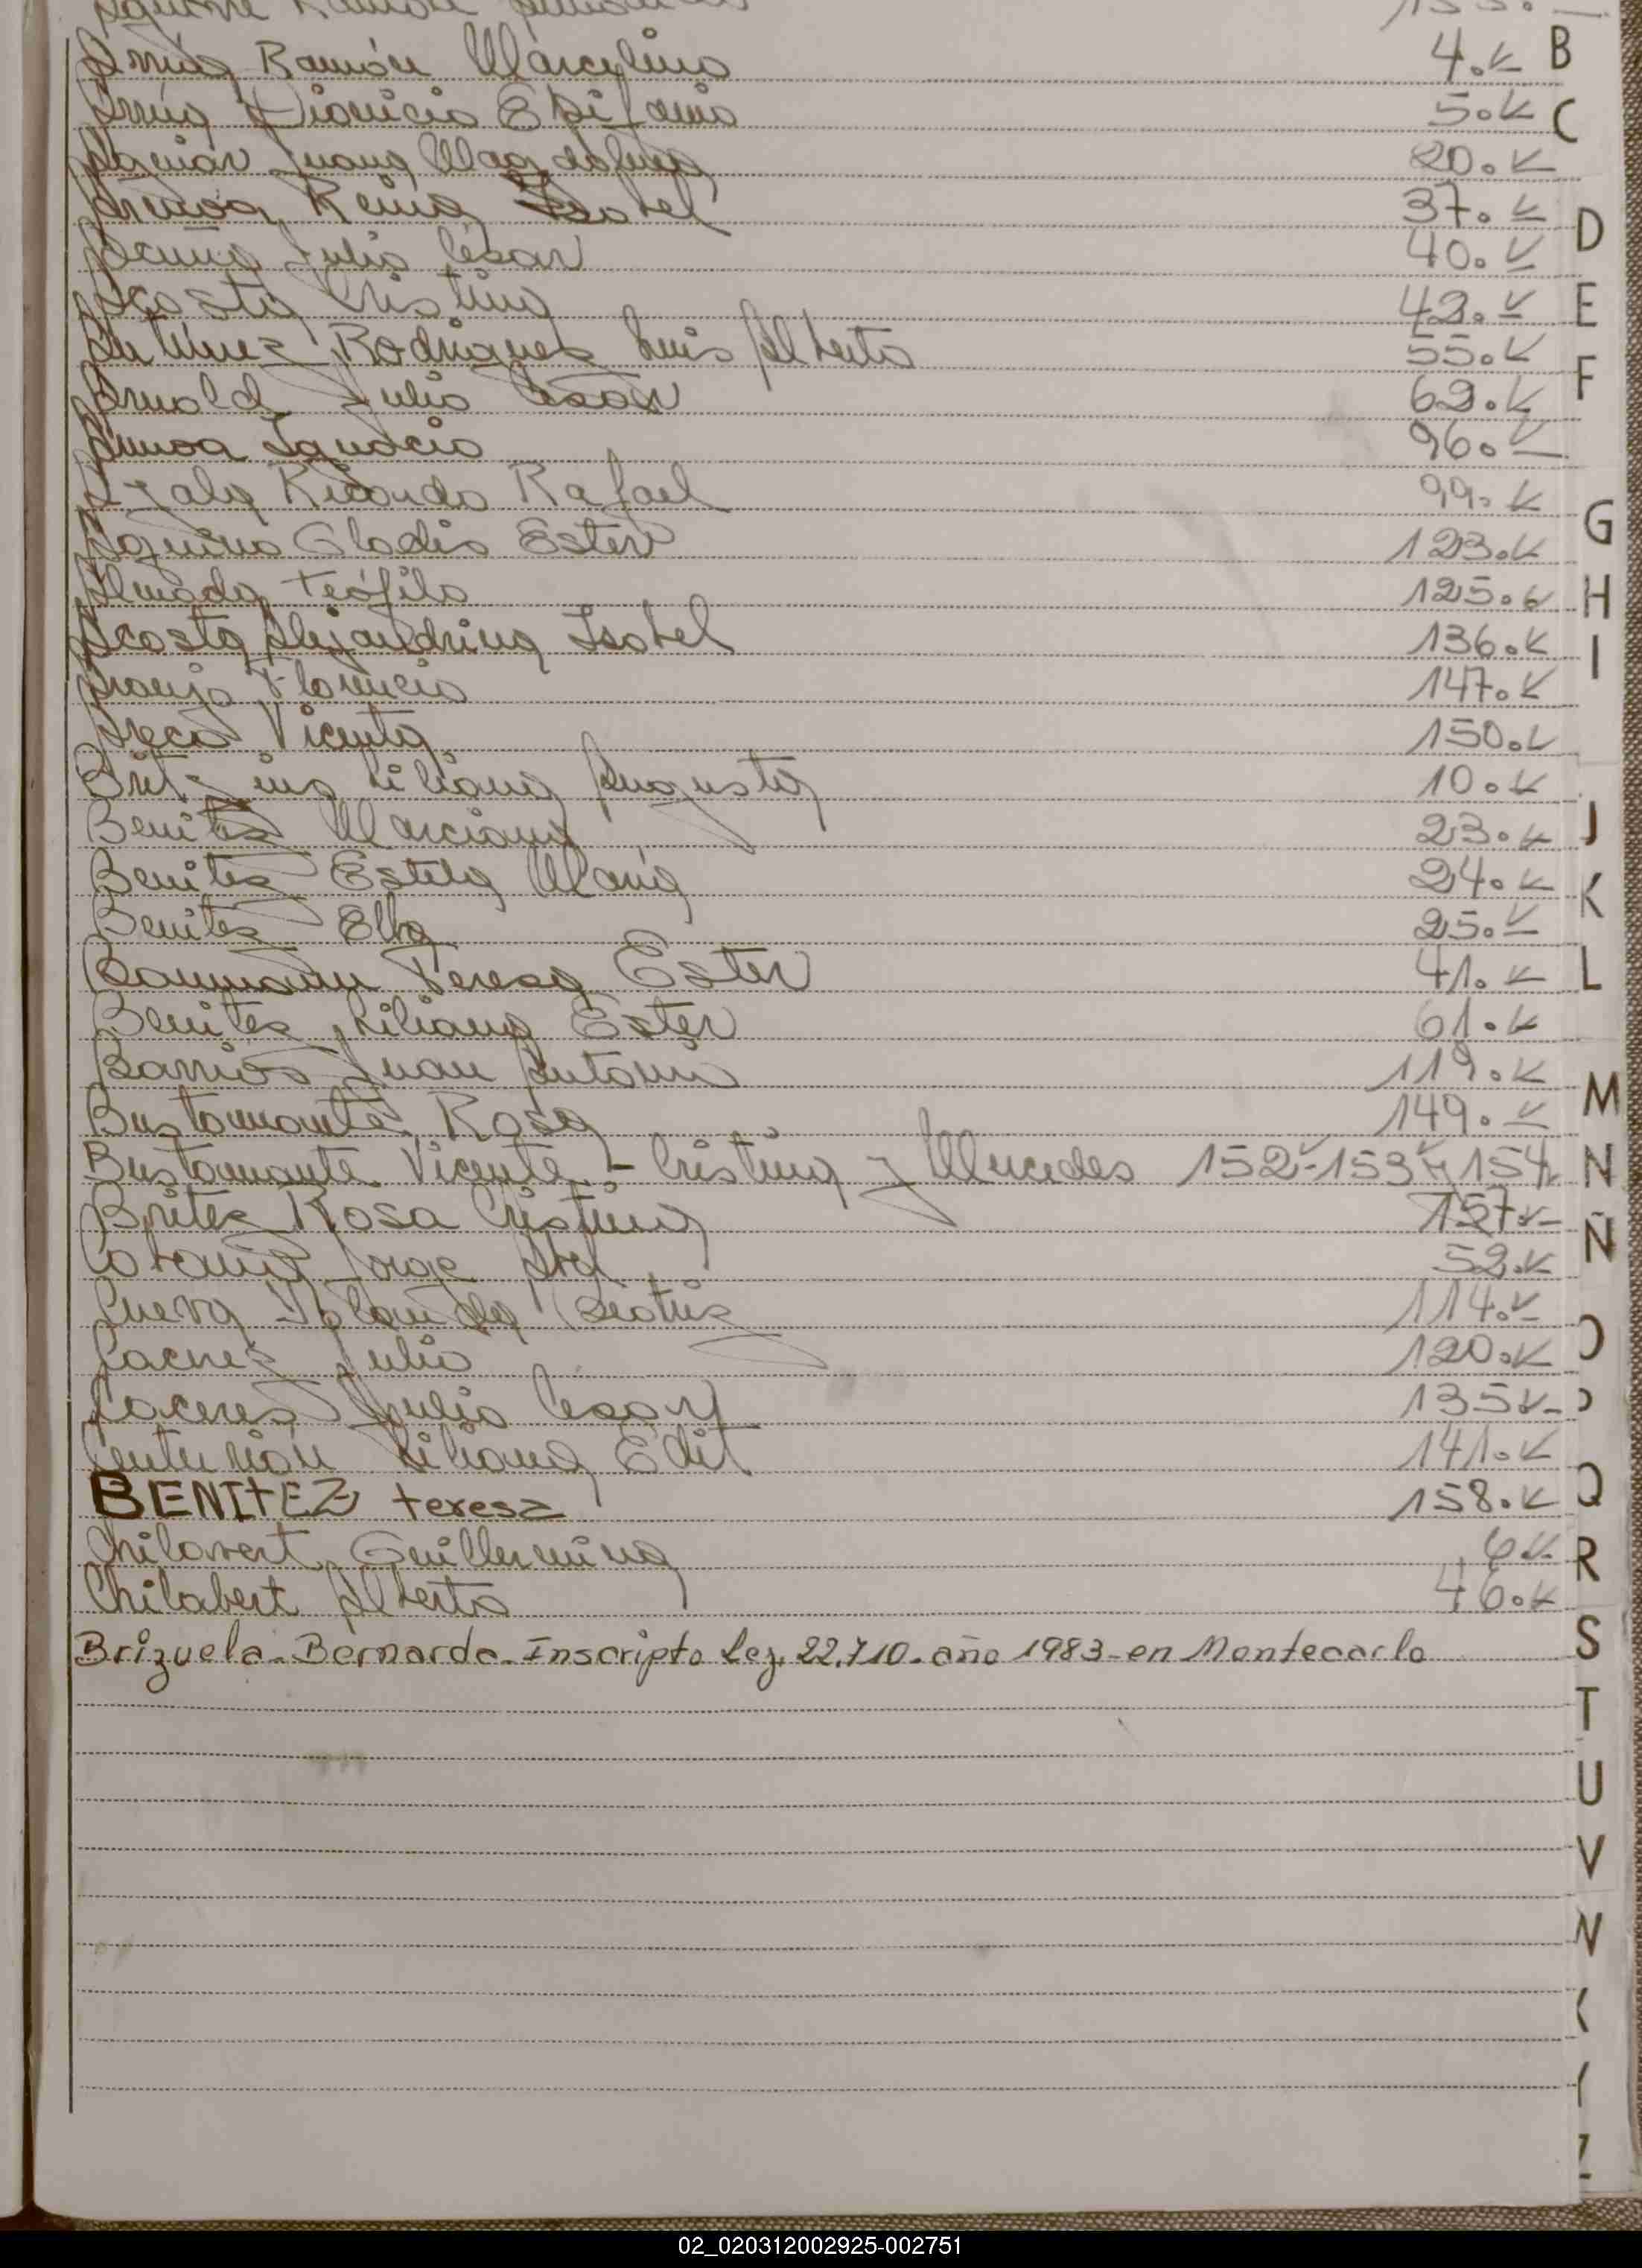 Aguirre Ramón 133.
Arrúa Ramón Marcelino 4. B
Arrúa Dionicio Epifanio 5. C
Juana Magdalena 20.
Reina Isabel 37. D
Acuña Julio César 40.
Acosta Cristina 42. E
Antúnez Rodriguez Luis Alberto 55. F
Arnold Julio César 62.
Ignacio 96.
Ayala Ricardo Rafael 99. G
Aquino Gladis Ester 123.
Almada Teófilo 125. H
Acosta Alejandrina Isabel 136. I
Araujo Florencio 147.
Vicenta 150.
Liliana Augusta 10.
Benitez Marciana 23. J
Benitez Estela María 24. K
Benitez Elba 25.
Baumann Teresa Ester 41. L
Benitez Liliana Ester 61.
Barrios Juan Antonio 119.
Bustamante Rosa 149. M
Bustamante Vicente - Cristina y Mercedes 152-153 y 154 N
Britez Rosa Cristina 157 Ñ
Jorge Abel 52.
Cueva Yolanda Beatriz 114. O
Julio 120.
Caceres Julio Cesar 135 P
Centurión Liliana Edit 141.
BENITEZ teresa 158. Q
Chilavert Guillermina 6 R
Chilabert Alberto 46.
Brizuela - Bernardo - Inscripto Ley. 22.710. año 1983 - en Montecarlo S
T
U
V
Z
02_020312002925-002751